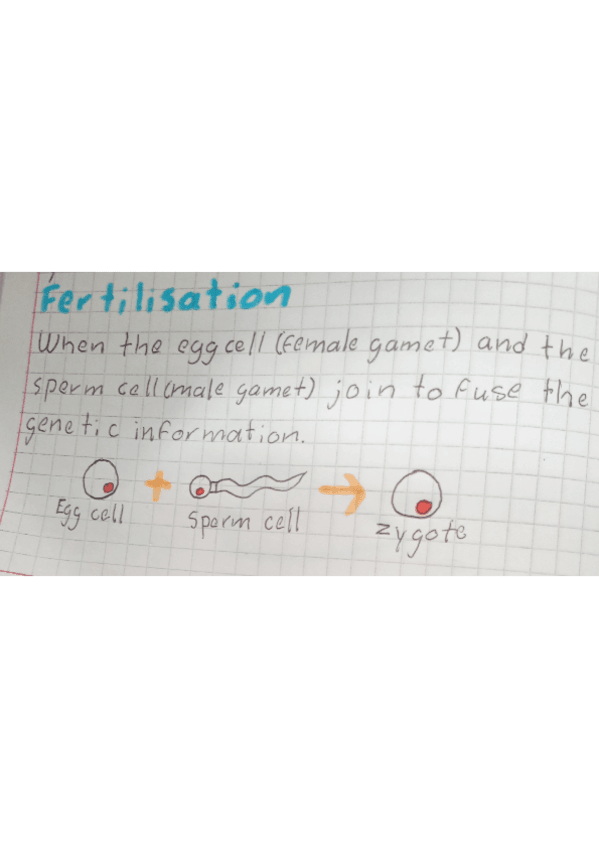 Fertilisation
When the egg cell (female gamet) and the
sperm cell (male gamet) join to fuse the
genetic information.
Egg cell + Sperm cell → zygote